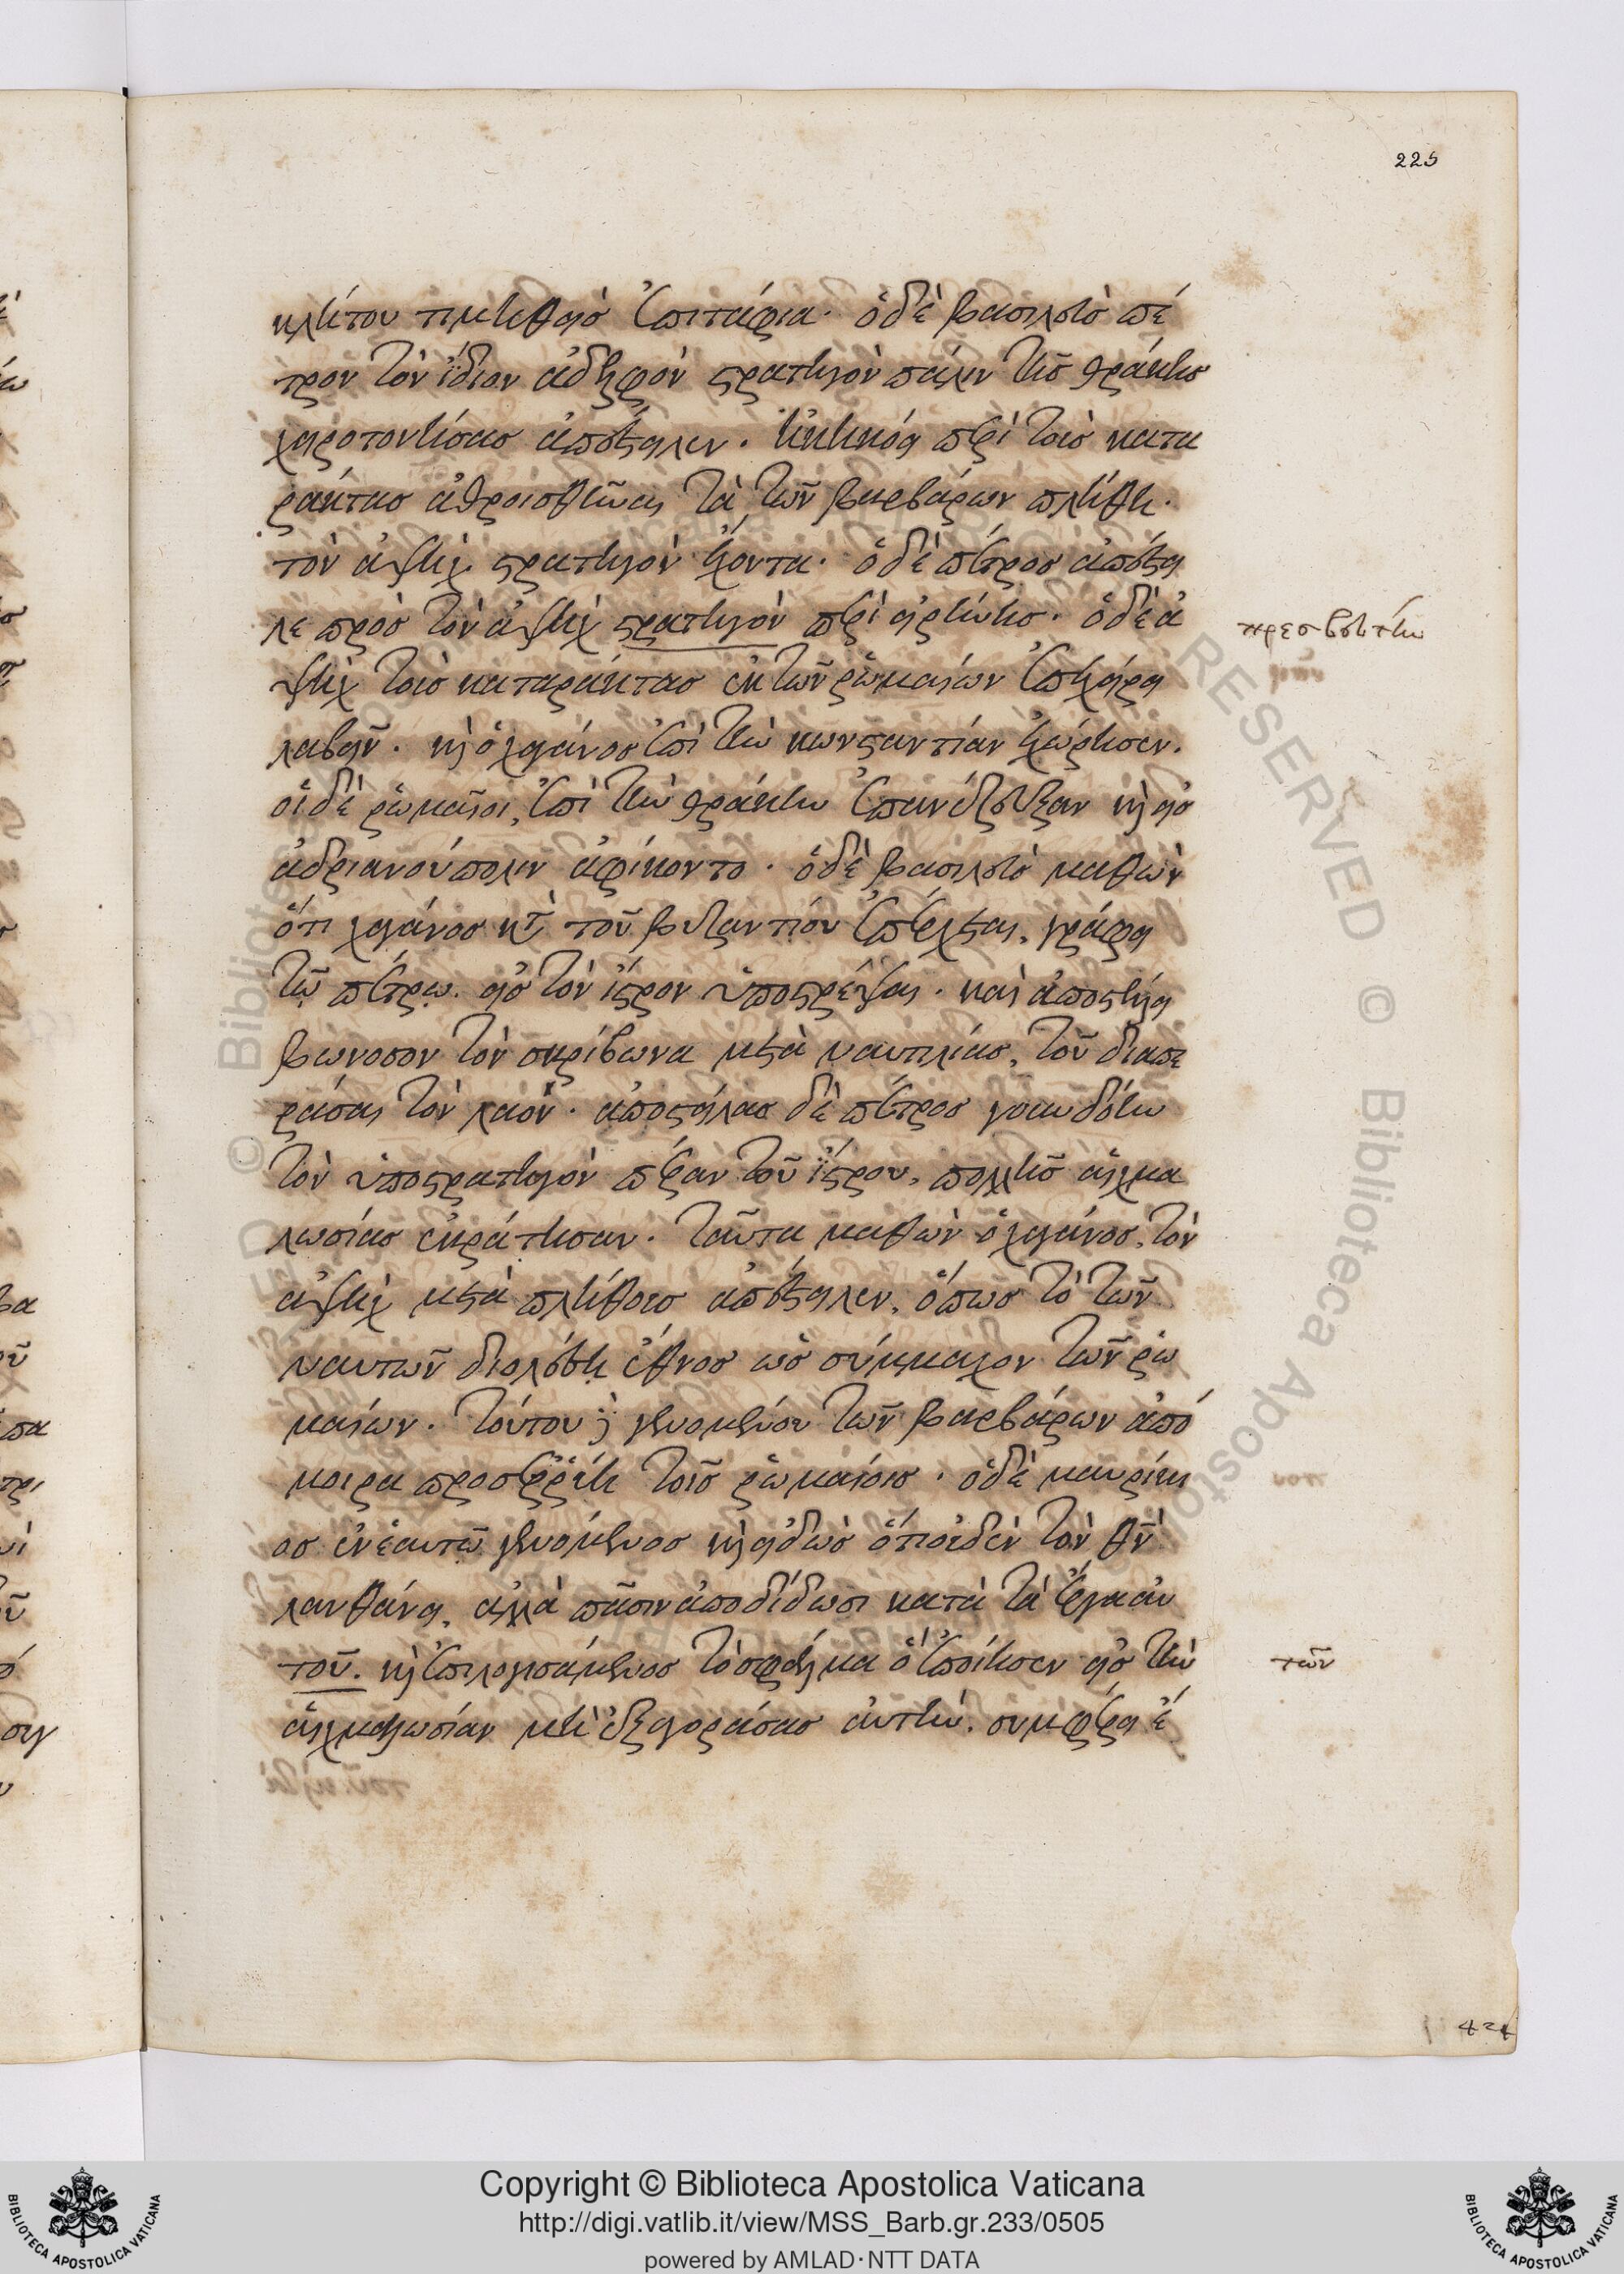 225
κλήτου τιμηθεὶς ἐπιτάφια. ὁ δὲ βασιλεὺς πέ
τρον τὸν ἴδιον ἀδελφὸν στρατηγὸν πάλιν τῆς θράκης
χειροτονήσας ἀπέστειλεν. ἠκηκόει περὶ τοὺς κατα
ράκτας ἀθροισθῆναι τὰ τῶν βαρβάρων πλήθη.
τὸν ἀψὴχ στρατηγὸν ἔχοντα. ὁ δὲ πέτρος ἀπέστει
λε πρὸς τὸν ἀψὴχ στρατηγὸν περὶ εἰρήνης. ὁ δὲ ἀ
πρεσβευτὴν
ψὴχ τοὺς καταράκτας ἐκ τῶν ῥωμαίων ἐπεχείρει
λαβεῖν. καὶ ὁ χαγάνος ἐπὶ τὴν κωνσταντίαν ἐχώρησεν.
οἱ δὲ ῥωμαῖοι, ἐπὶ τὴν θράκην ἐπανέζευξαν καὶ εἰς
ἀδριανούπολιν ἀφίκοντο. ὁ δὲ βασιλεὺς μαθὼν
ὅτι χαγάνος κατὰ τοῦ βυζαντίου ἐπέρχεται, γράφει
τῷ πέτρῳ. εἰς τὸν ἴστρον ὑποστρέψαι. καὶ ἀποστέλλει
βώνοσον τὸν σκρίβωνα μετὰ ναυτιλίας, τοῦ διαπε
ράσαι τὸν λαόν. ἀποστείλας δὲ πέτρος γουνδότην
τὸν ὑποστρατηγὸν πέραν τοῦ ἴστρου, πολλῆς αἰχμα
λωσίας ἐκράτησαν. ταῦτα μαθὼν ὁ χαγάνος, τὸν
ἀψὴχ μετὰ πλήθους ἀπέστειλεν, ὅπως τὸ τῶν
ναυτῶν διολέσῃ ἔθνος ὡς σύμμαχον τῶν ῥω
μαίων. τούτου δὲ γενομένου τῶν βαρβάρων ἀπό
μοιρα προσερρύη τοῖς ῥωμαίοις. ὁ δὲ μαυρίκι
ος ἐν ἑαυτῷ γενόμενος καὶ εἰδὼς ὅτι οὐδὲν τὸν θν
λανθάνει, ἀλλὰ πᾶσιν ἀποδίδωσι κατὰ τὰ ἔργα αὐ
τοῦ. καὶ ἐπιλογισάμενος τὸ σφάλμα ὃ ἐποίησεν εἰς τὴν
τῶν
αἰχμαλωσίαν μὴ ἐξαγοράσας αὐτὴν. συμφέρει ἐ
424
Copyright © Biblioteca Apostolica Vaticana
http://digi.vatlib.it/view/MSS_Barb.gr.233/0505
powered by AMLAD·NTT DATA
BIBLIOTECA APOSTOLICA VATICANA
BIBLIOTECA APOSTOLICA VATICANA